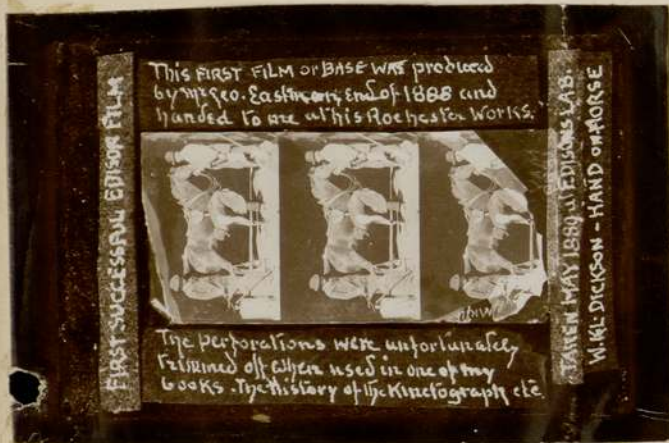 FIRST SUCCESSFUL EDISON FILM
This FIRST FILM or BASE WAS produced
by Mr Geo. Eastman, End of 1888 and
handed to me at his Rochester Works.
The perforations were unfortunately
trimmed off when used in one of my
books. The History of the Kinetograph etc.
TAKEN MAY 1889 at EDISONS LAB.
W.KL. DICKSON - HAND ON HORSE